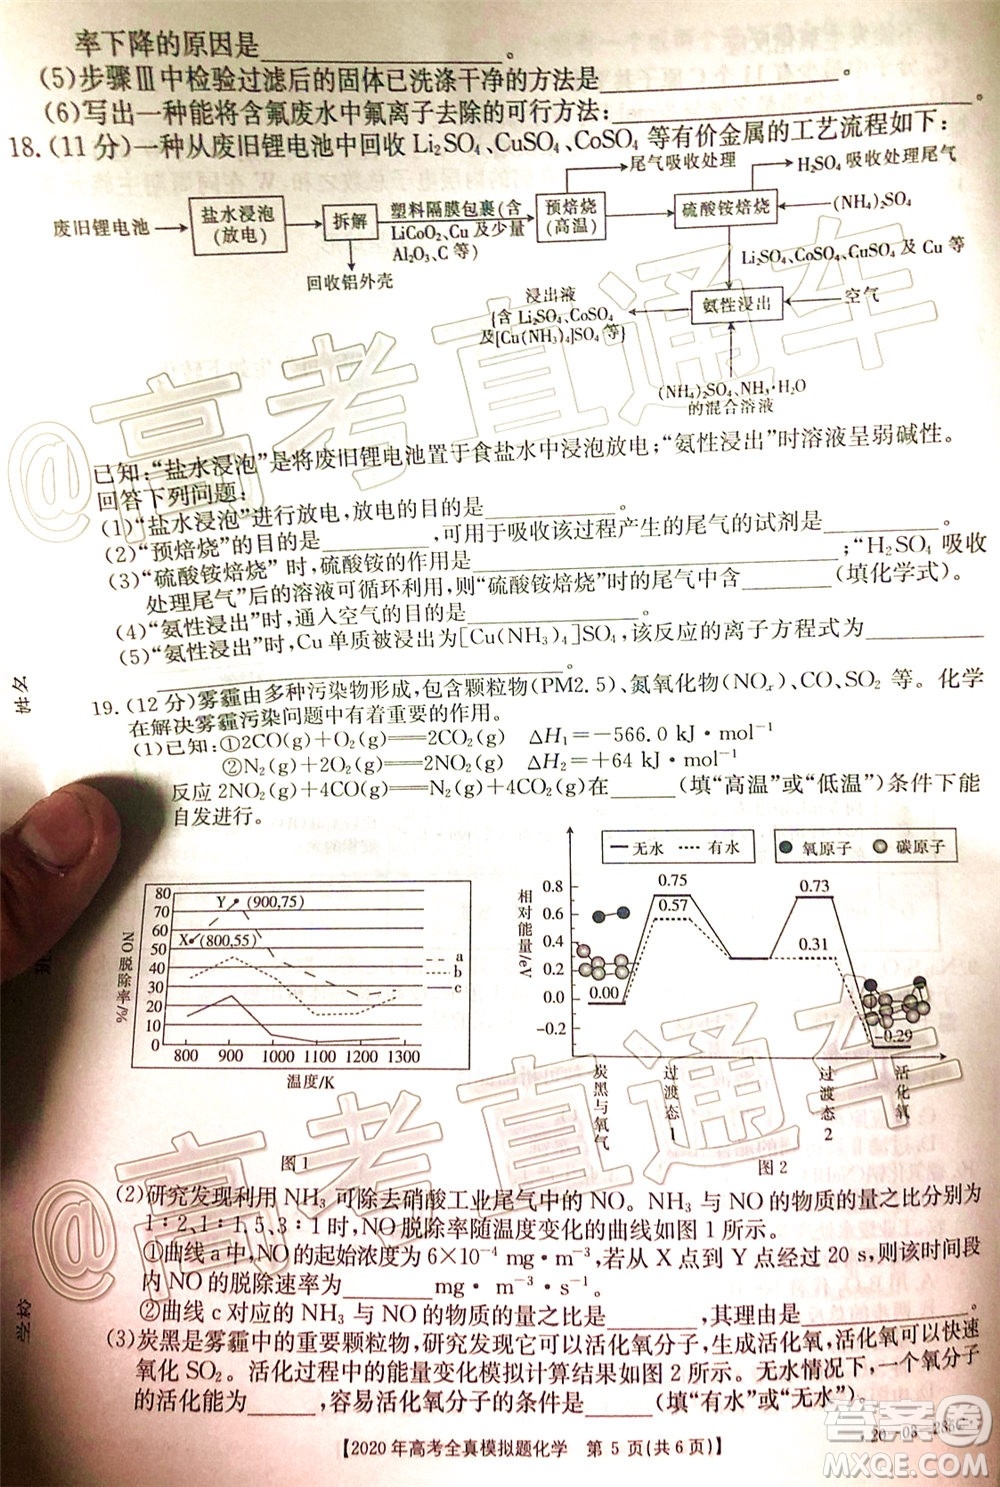 率下降的原因是____________。
(5)步骤Ⅲ中检验过滤后的固体已洗涤干净的方法是____________。
(6)写出一种能将含氟废水中氟离子去除的可行方法:____________。
18.(11分)一种从废旧锂电池中回收Li₂SO₄、CuSO₄、CoSO₄等有价金属的工艺流程如下:
尾气吸收处理
H₂SO₄吸收处理尾气
废旧锂电池
盐水浸泡(放电)
拆解
塑料隔膜包裹(含LiCoO₂、Cu及少量Al₂O₃、C等)
预焙烧(高温)
硫酸铵焙烧
(NH₄)₂SO₄
回收铝外壳
Li₂SO₄、CoSO₄、CuSO₄及Cu等
浸出液{含Li₂SO₄、CoSO₄及[Cu(NH₃)₄]SO₄等}
氨性浸出
空气
(NH₄)₂SO₄、NH₃·H₂O的混合溶液
已知:“盐水浸泡”是将废旧锂电池置于食盐水中浸泡放电;“氨性浸出”时溶液呈弱碱性。
回答下列问题:
(1)“盐水浸泡”进行放电,放电的目的是____________。
(2)“预焙烧”的目的是________,可用于吸收该过程产生的尾气的试剂是________。
(3)“硫酸铵焙烧”时,硫酸铵的作用是____________;“H₂SO₄吸收
处理尾气”后的溶液可循环利用,则“硫酸铵焙烧”时的尾气中含________(填化学式)。
(4)“氨性浸出”时,通入空气的目的是____________。
(5)“氨性浸出”时,Cu单质被浸出为[Cu(NH₃)₄]SO₄,该反应的离子方程式为________
____________。
19.(12分)雾霾由多种污染物形成,包含颗粒物(PM2.5)、氮氧化物(NOₓ)、CO、SO₂等。化学
在解决雾霾污染问题中有着重要的作用。
(1)已知:①2CO(g)+O₂(g)══2CO₂(g) ΔH₁=-566.0 kJ·mol⁻¹
②N₂(g)+2O₂(g)══2NO₂(g) ΔH₂=+64 kJ·mol⁻¹
反应2NO₂(g)+4CO(g)══N₂(g)+4CO₂(g)在________(填“高温”或“低温”)条件下能
自发进行。
NO脱除率/%
80
70
60
50
40
30
20
10
0
Y (900,75)
X (800,55)
a
b
c
800 900 1000 1100 1200 1300
温度/K
图1
无水 有水
氧原子 碳原子
相对能量/eV
0.8
0.6
0.4
0.2
0.0
-0.2
0.75
0.57
0.73
0.31
0.00
-0.29
炭黑与氧气
过渡态1
过渡态2
活化氧
图2
(2)研究发现利用NH₃可除去硝酸工业尾气中的NO。NH₃与NO的物质的量之比分别为
1∶2、1∶1.5、3∶1时,NO脱除率随温度变化的曲线如图1所示。
①曲线a中,NO的起始浓度为6×10⁻⁴ mg·m⁻³,若从X点到Y点经过20 s,则该时间段
内NO的脱除速率为________mg·m⁻³·s⁻¹。
②曲线c对应的NH₃与NO的物质的量之比是________,其理由是________。
(3)炭黑是雾霾中的重要颗粒物,研究发现它可以活化氧分子,生成活化氧,活化氧可以快速
氧化SO₂。活化过程中的能量变化模拟计算结果如图2所示。无水情况下,一个氧分子
的活化能为________,容易活化氧分子的条件是________(填“有水”或“无水”)。
【2020年高考全真模拟题化学 第5页(共6页)】
姓名
班
学校
@高考直通车
高考直通车
答案圈